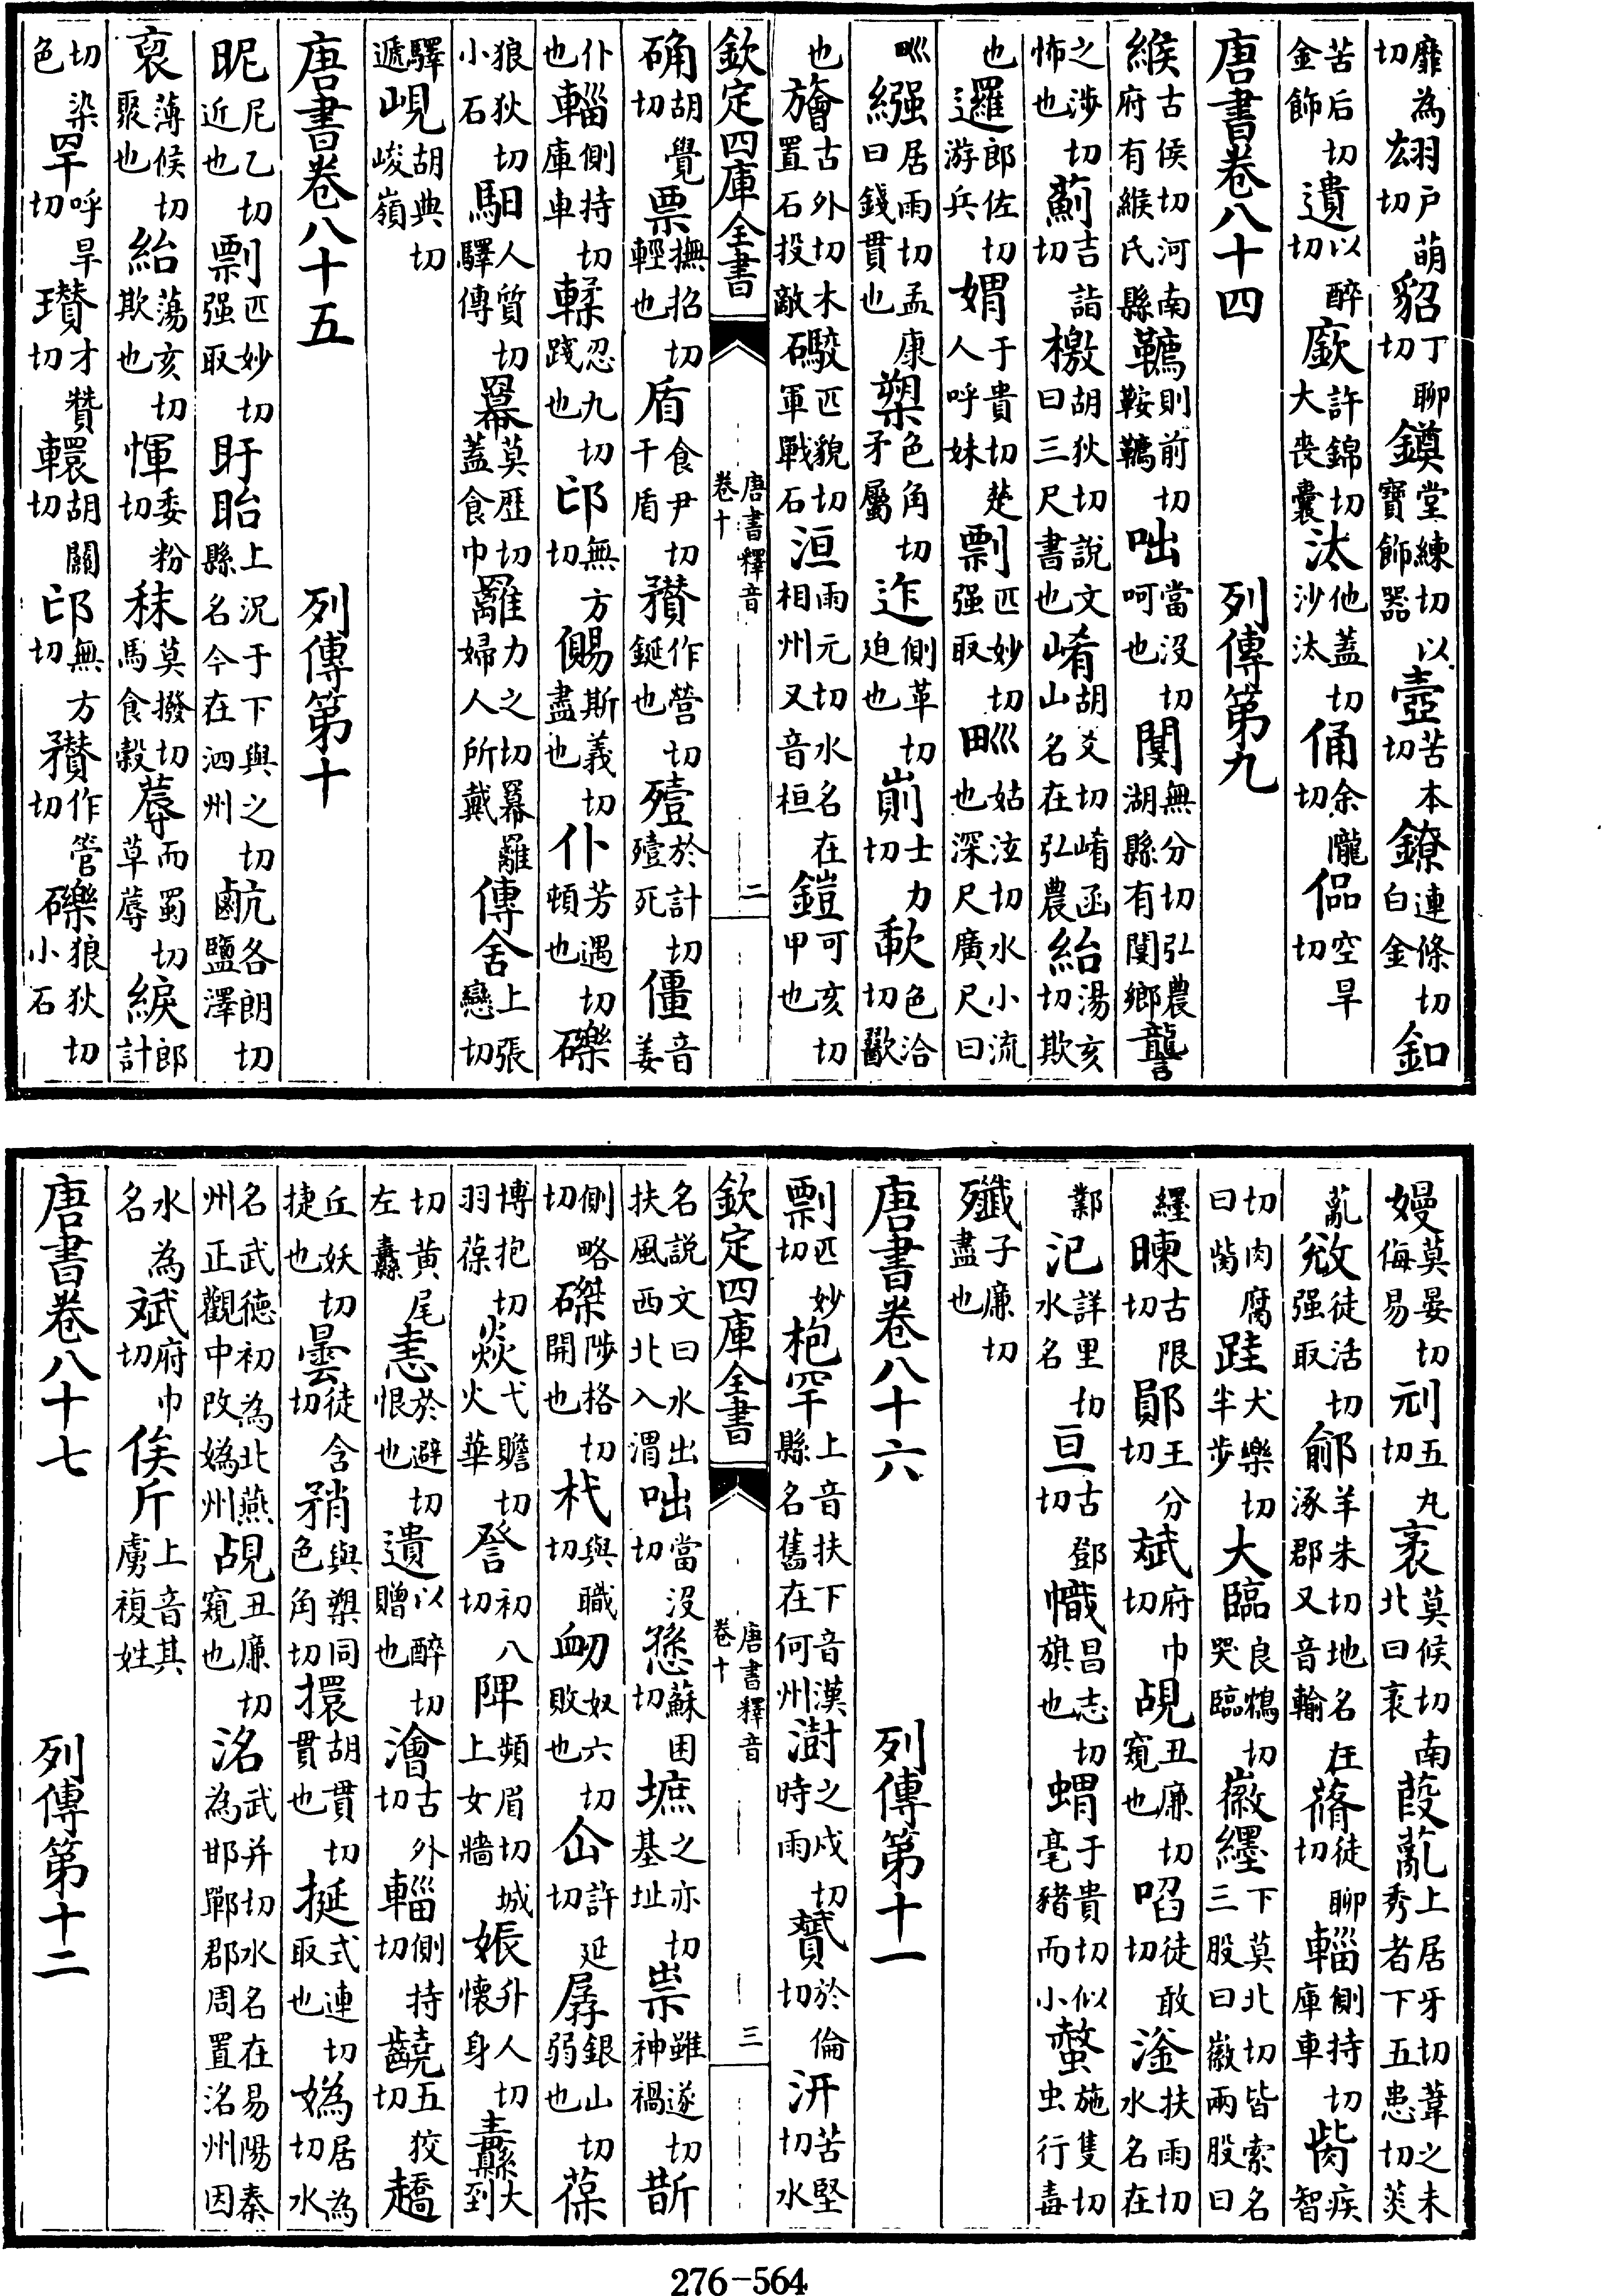 靡為切翃戶萌切貂丁聊切堂練切以寶飾器壼苦本切鐐連條切白金釦
苦后切金飾遺以醉切廞許錦切大喪囊汰他蓋切沙汰俑余隴切偘空旱切
唐書卷八十四 列傳第九
緱古侯切河南府有緱氏縣韉則前切鞍韉咄當没切呵也閿無分切弘農湖縣有閿鄉讋
之涉切怖也薊吉詣切檄胡狄切說文曰三尺書也崤胡爻切崤函山名在弘農紿湯亥切欺
也邏郎佐切游兵媦于貴切楚人呼妹剽匹妙切强取甽姑泫切水小流也深尺廣尺曰
甽繦居雨切孟康曰錢貫也槊色角切矛屬迮側革切迫也崱士力切歃色洽切歠
也旝古外切木置石投敵礮匹貌切軍戰石洹雨元切水名在相州又音桓鎧可亥切甲也
欽定四庫全書 唐書釋音卷十 二
确胡覺切票撫招切輕也盾食尹切干盾穳作營切鋋也殪於計切殪死僵音姜
仆也輜側持切庫車輮忍九切踐也邙無方切儩斯義切盡也仆芳遇切頓也礫
狼狄切小石馹人質切驛傳羃莫歷切蓋食巾䍦力之切羃䍦婦人所戴傳舍上張戀切
驛遞峴胡典切峻嶺
唐書卷八十五 列傳第十
昵尼乙切近也剽匹妙切强取盱眙上況于下與之切縣名今在泗州䴚各朗切鹽澤
裒薄候切聚也紿蕩亥切欺也惲委粉切秣莫撥切馬食穀蓐而蜀切草蓐綟郎計
切染色罕呼旱切瓉才贊切轘胡關切邙無方切穳作管切礫狼狄切小石
嫚莫晏切侮易刓五丸切袤莫候切南北曰袤葭薍上居牙切葦之未秀者下五患切菼
薍敓徒活切强取鄃羊朱切地名在涿郡又音輸蓨徒聊切輜側持切庫車胔疾智
切肉腐曰胔跬犬樂切半步大臨良鴆切哭臨徽纆下莫北切皆索名三股曰徽兩股曰
纆暕古限切鄖王分切斌府巾切覘丑廉切窺也啗徒敢切滏扶雨切水名在
鄴汜詳里切水名亘古鄧切幟昌志切旗也蝟于貴切似毫豬而小螫施隻切虫行毒
殲子廉切盡也
唐書卷八十六 列傳第十一
剽匹妙切枹罕上音扶下音漢縣名舊在河州澍之戍切時雨贇於倫切汧苦堅切水
名說文曰水出扶風西北入渭咄當没切愻蘇困切墌之亦切基址祟雖遂切神禍斮
側略切磔陟格切開也杙與職切衂奴六切敗也仚許延切孱銀山切弱也葆
博抱切羽葆焱弋贍切火華詧初八切陴頻眉切城上女牆娠升人切懷身纛大到
切黃尾左纛恚於避切恨也遺以醉切贈也澮古外切輜側持切五狡切趫
丘妖切捷也曇徒含切矟與槊同色角切擐胡貫切貫也挻式連切取也媯居為切水
名武德初為北燕州正觀中改媯州覘丑廉切窺也洺武并切水名在易陽秦為邯鄲郡周置洺州因
水為名斌府巾切俟斤上音其虜複姓
唐書卷八十七 列傳第十二
276-564